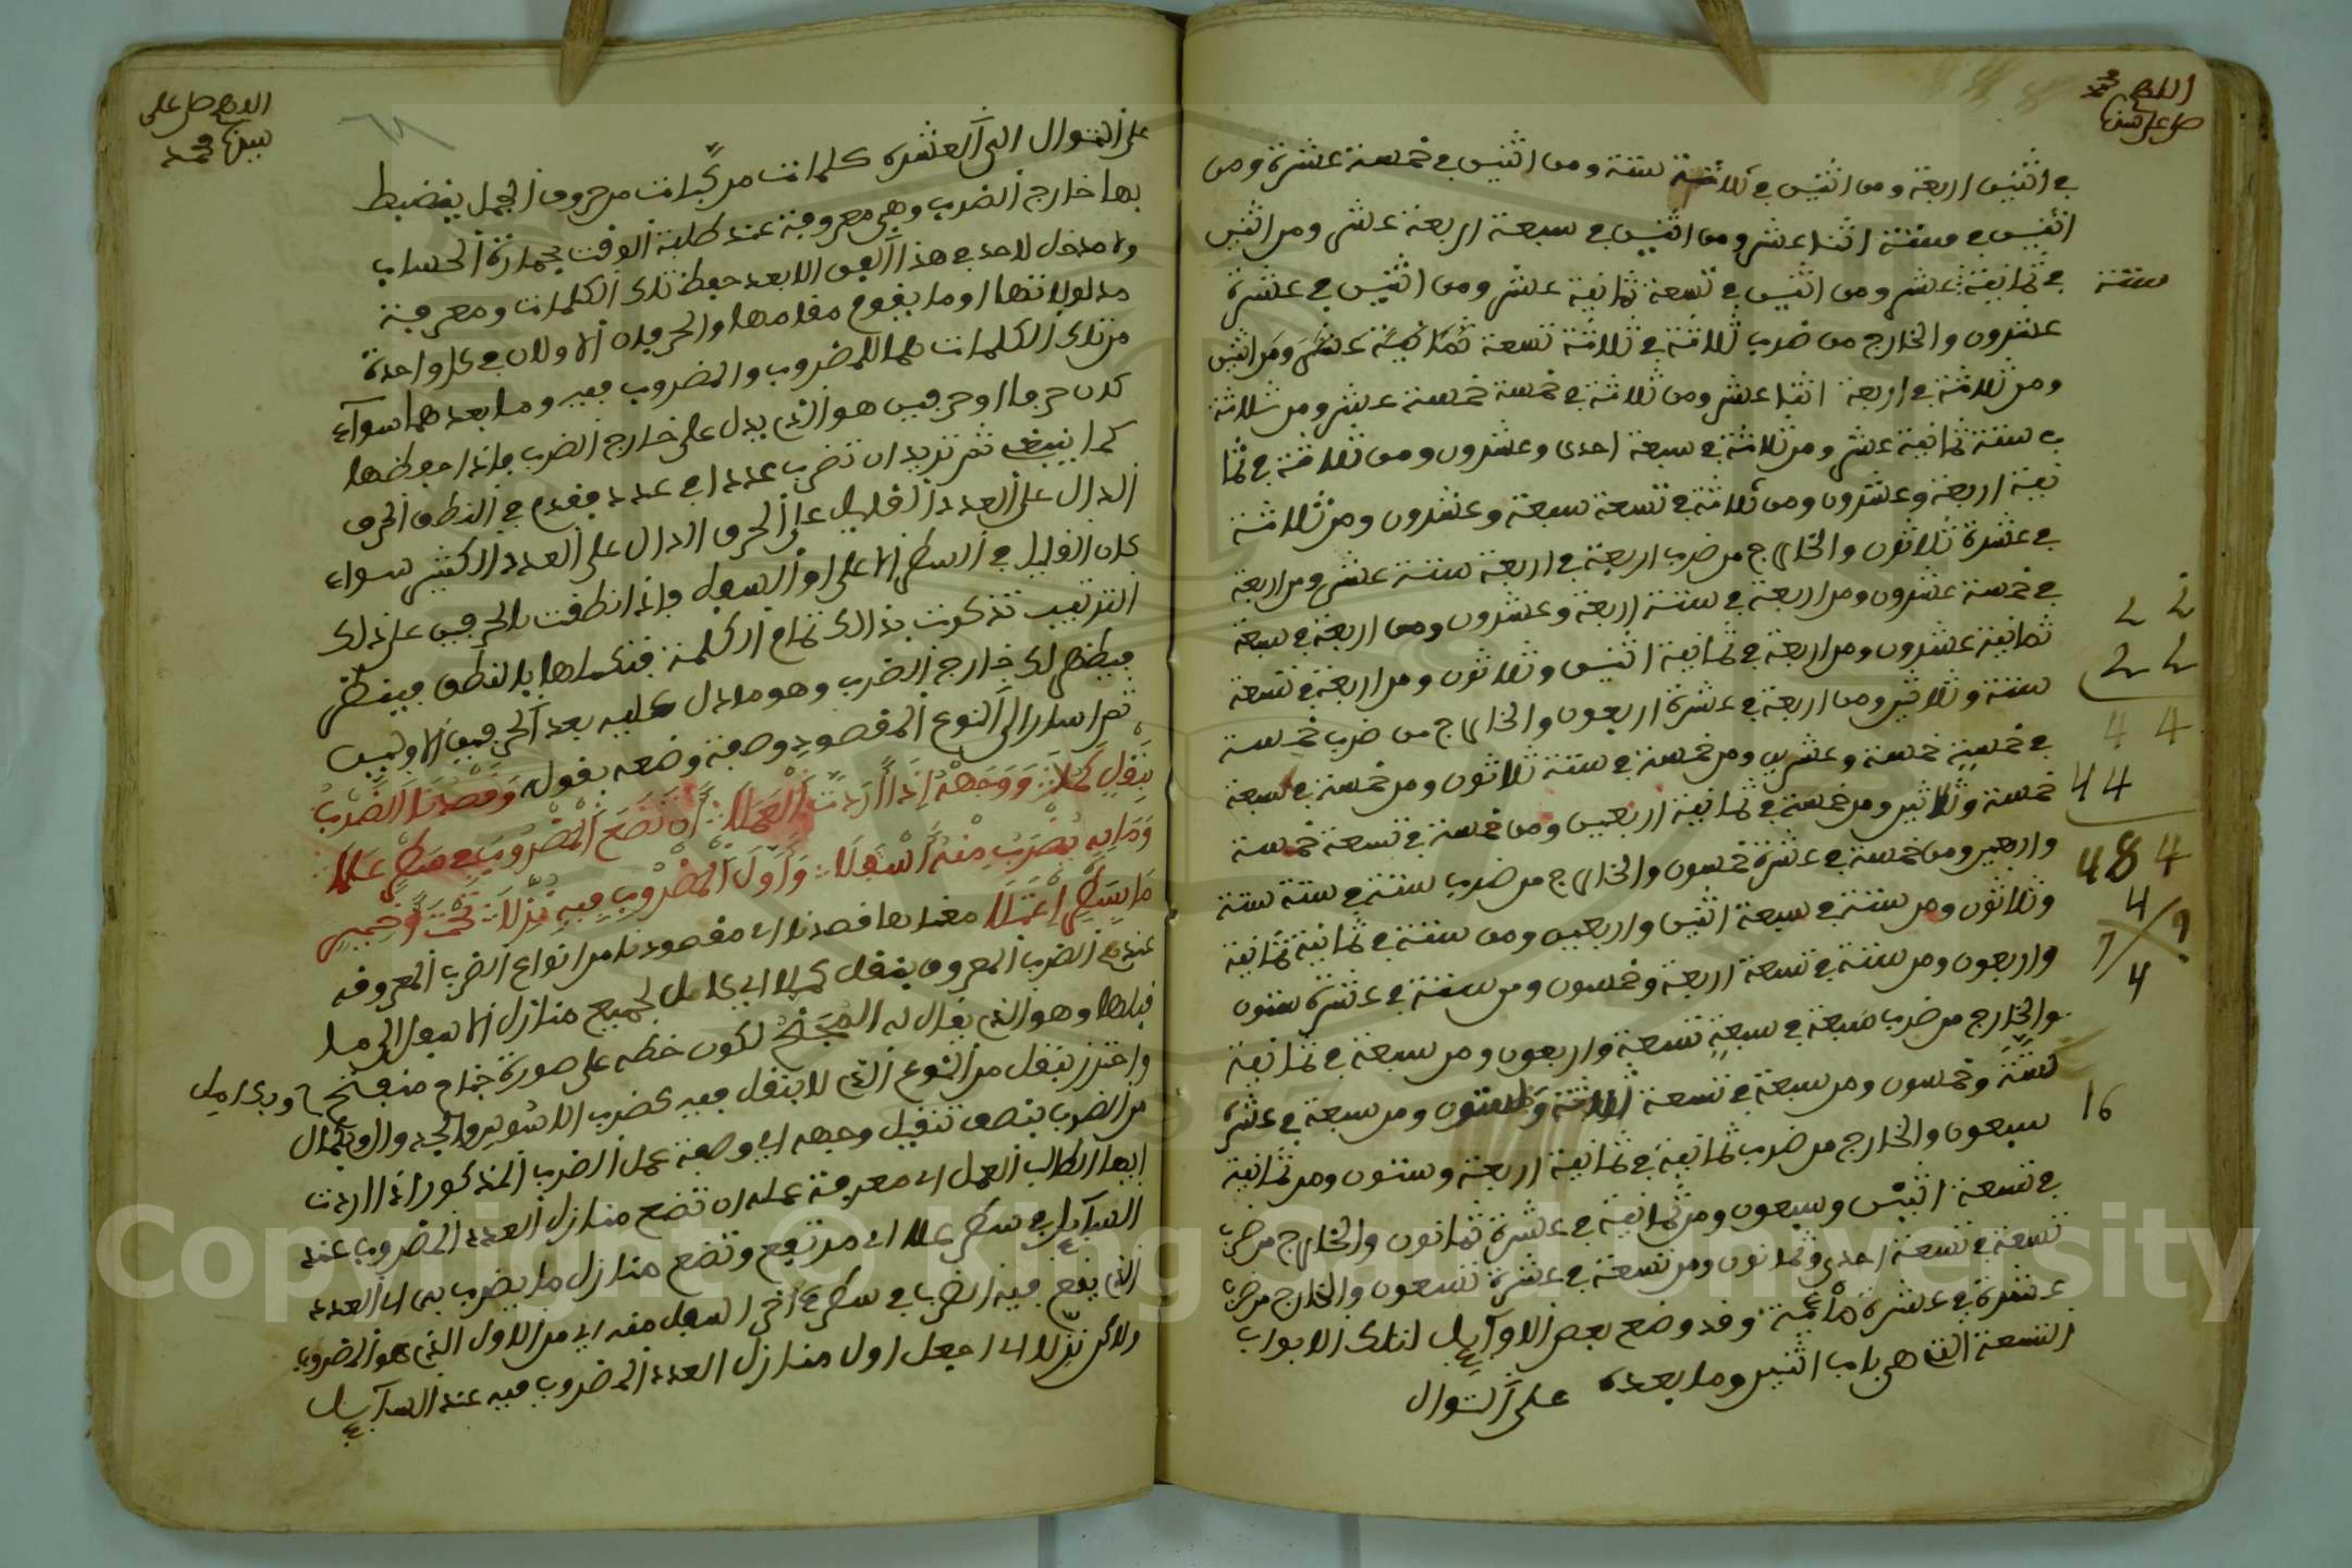 اللهم
صل على سيدنا محمد
في اثنين اربعة ومن اثنين في ثلاثة ستة ومن اثنين في خمسة عشرة ومن
اثنين في ستة اثنا عشر ومن اثنين في سبعة اربعة عشر ومن اثنين
ستة
في ثمانية عشر ومن اثنين في تسعة ثمانية عشر ومن اثنين في عشرة
عشرون والخارج من ضرب ثلاثة في ثلاثة تسعة ومن اثنين
ومن ثلاثة في اربعة اثنا عشر ومن ثلاثة في خمسة خمسة عشر ومن ثلاثة
في ستة ثمانية عشر ومن ثلاثة في سبعة احدى وعشرون ومن ثلاثة في ثما
نية اربعة وعشرون ومن ثلاثة في تسعة سبعة وعشرون ومن ثلاثة
في عشرة ثلاثون والخارج من ضرب اربعة في اربعة ستة عشر ومن اربعة
في خمسة عشرون ومن اربعة في ستة اربعة وعشرون ومن اربعة في سبعة
ثمانية عشرون ومن اربعة في ثمانية اثنين وثلاثون ومن اربعة في تسعة
ستة وثلاثين ومن اربعة في عشرة اربعون والخارج من ضرب خمسة
في خمسة خمسة وعشرين ومن خمسة في ستة ثلاثون ومن خمسة في سبعة
خمسة وثلاثين ومن خمسة في ثمانية اربعين ومن خمسة في تسعة خمسة
واربعين ومن خمسة في عشرة خمسون والخارج من ضرب ستة في ستة ستة
وثلاثون ومن ستة في سبعة اثنين واربعين ومن ستة في ثمانية ثمانية
واربعون ومن ستة في تسعة اربعة وخمسون ومن ستة في عشرة ستون
والخارج من ضرب سبعة في سبعة تسعة واربعون ومن سبعة في ثمانية
ستة وخمسون ومن سبعة في تسعة ثلاثة وستون ومن سبعة في عشرة
سبعون والخارج من ضرب ثمانية في ثمانية اربعة وستون ومن ثمانية
في تسعة اثنين وسبعون ومن ثمانية في عشرة ثمانون والخارج من ضرب
تسعة في تسعة احدى وثمانون ومن تسعة في عشرة تسعون والخارج من ضرب
عشرة في عشرة مائة وقد وضع بعض الاوايل لتلك الابواب
التسعة التي هي باب اثنين وما بعده على التوال
2 2
2 2
4 4
4 4
4 8 4
4
7 ?
4
16
اللهم صل على
سيدنا محمد
على التوال الى العشرة كلمات مركبات من حروف الجمل ينضبط
بها خارج الضرب وهي معروفة عند طلبة الوقت بجمارة الحساب
ولا مدخل لاحد في هذا الفن الا بعد حفظ تلك الكلمات ومعرفة
مدلولاتها او ما يقوم مقامها والحرفان الاولان في كل واحدة
من تلك الكلمات هما للمضروب والمضروب فيه وما بعدهما سوآء
كان حرفا او حرفين هو الذي يدل على خارج الضرب فاذا حفظها
كما ينبغي ثم تريد ان تضرب عددا في عدد فقدم في النطق الحرف
الدال على العدد القليل على الحرف الدال على العدد الكثير سواء
كان القليل في السطر الاعلى او السفل فاذا نطقت بالحرفين على ذلك
الترتيب تذكرت بذلك تمام الكلمة فتكملها بالنطق
فيظهر لك خارج الضرب وهو ما دل عليه بعد الحرفين الاولين
ثم اشار الى النوع المقصود وصفة وضعه بقوله وَقَصْدُنَا الضَّرْبُ
بِنَقْلٍ كَمُلَا وَوَجْهُهُ إِذَا أَرَدْتَ الْعَمَلَا أَنْ تَضَعَ الْمَضْرُوبَ فِي سَطْرٍ عَلَا
وَمَا بِهِ يُضْرَبُ مِنْهُ أَسْفَلَا وَأَوَّلَ الْمَضْرُوبِ فِيهِ نَزِّلَا تَحْتَ
معناها قصدنا اي مقصودنا من انواع الضرب المعروفه
عندهم الضرب المعروف بنقل كملا اي كامل لجميع منازل الاسفل الى ما
قبلها وهو الذي يقال له المجنح لكون خطه على صورة جناح منفتح
واحترز بنقل من النوع الذي لا ينقل فيه كضرب
من الضرب بنصف تنقيل وجهه اي وصفة عمل الضرب المذكور اذا اردت
ايها الطالب العمل اي معرفة عمله ان تضع منازل العدد المضروب عند
السآيل في سطر علا اي مرتفع وتضع منازل ما يضرب به اي العدد
الذي يقع فيه الضرب في سطر اخر اسفل منه اي من الاول الذي هو المضروب
نزلا اي اجعل اول منازل العدد المضروب فيه عند السآيل
Copyright © King Saud University